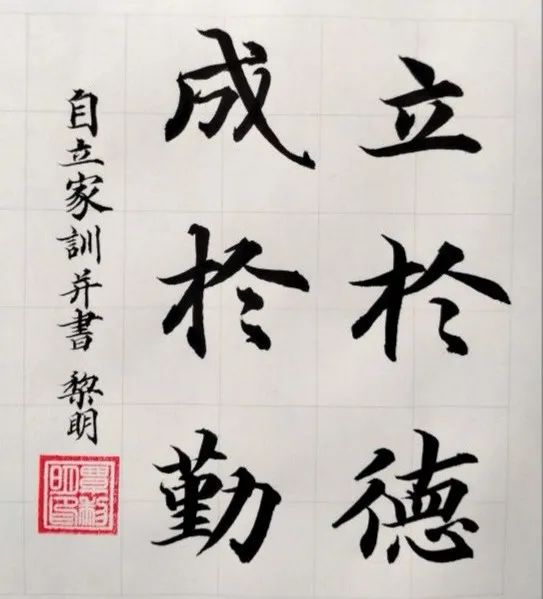 立於德
成於勤
自立家訓并書 黎明